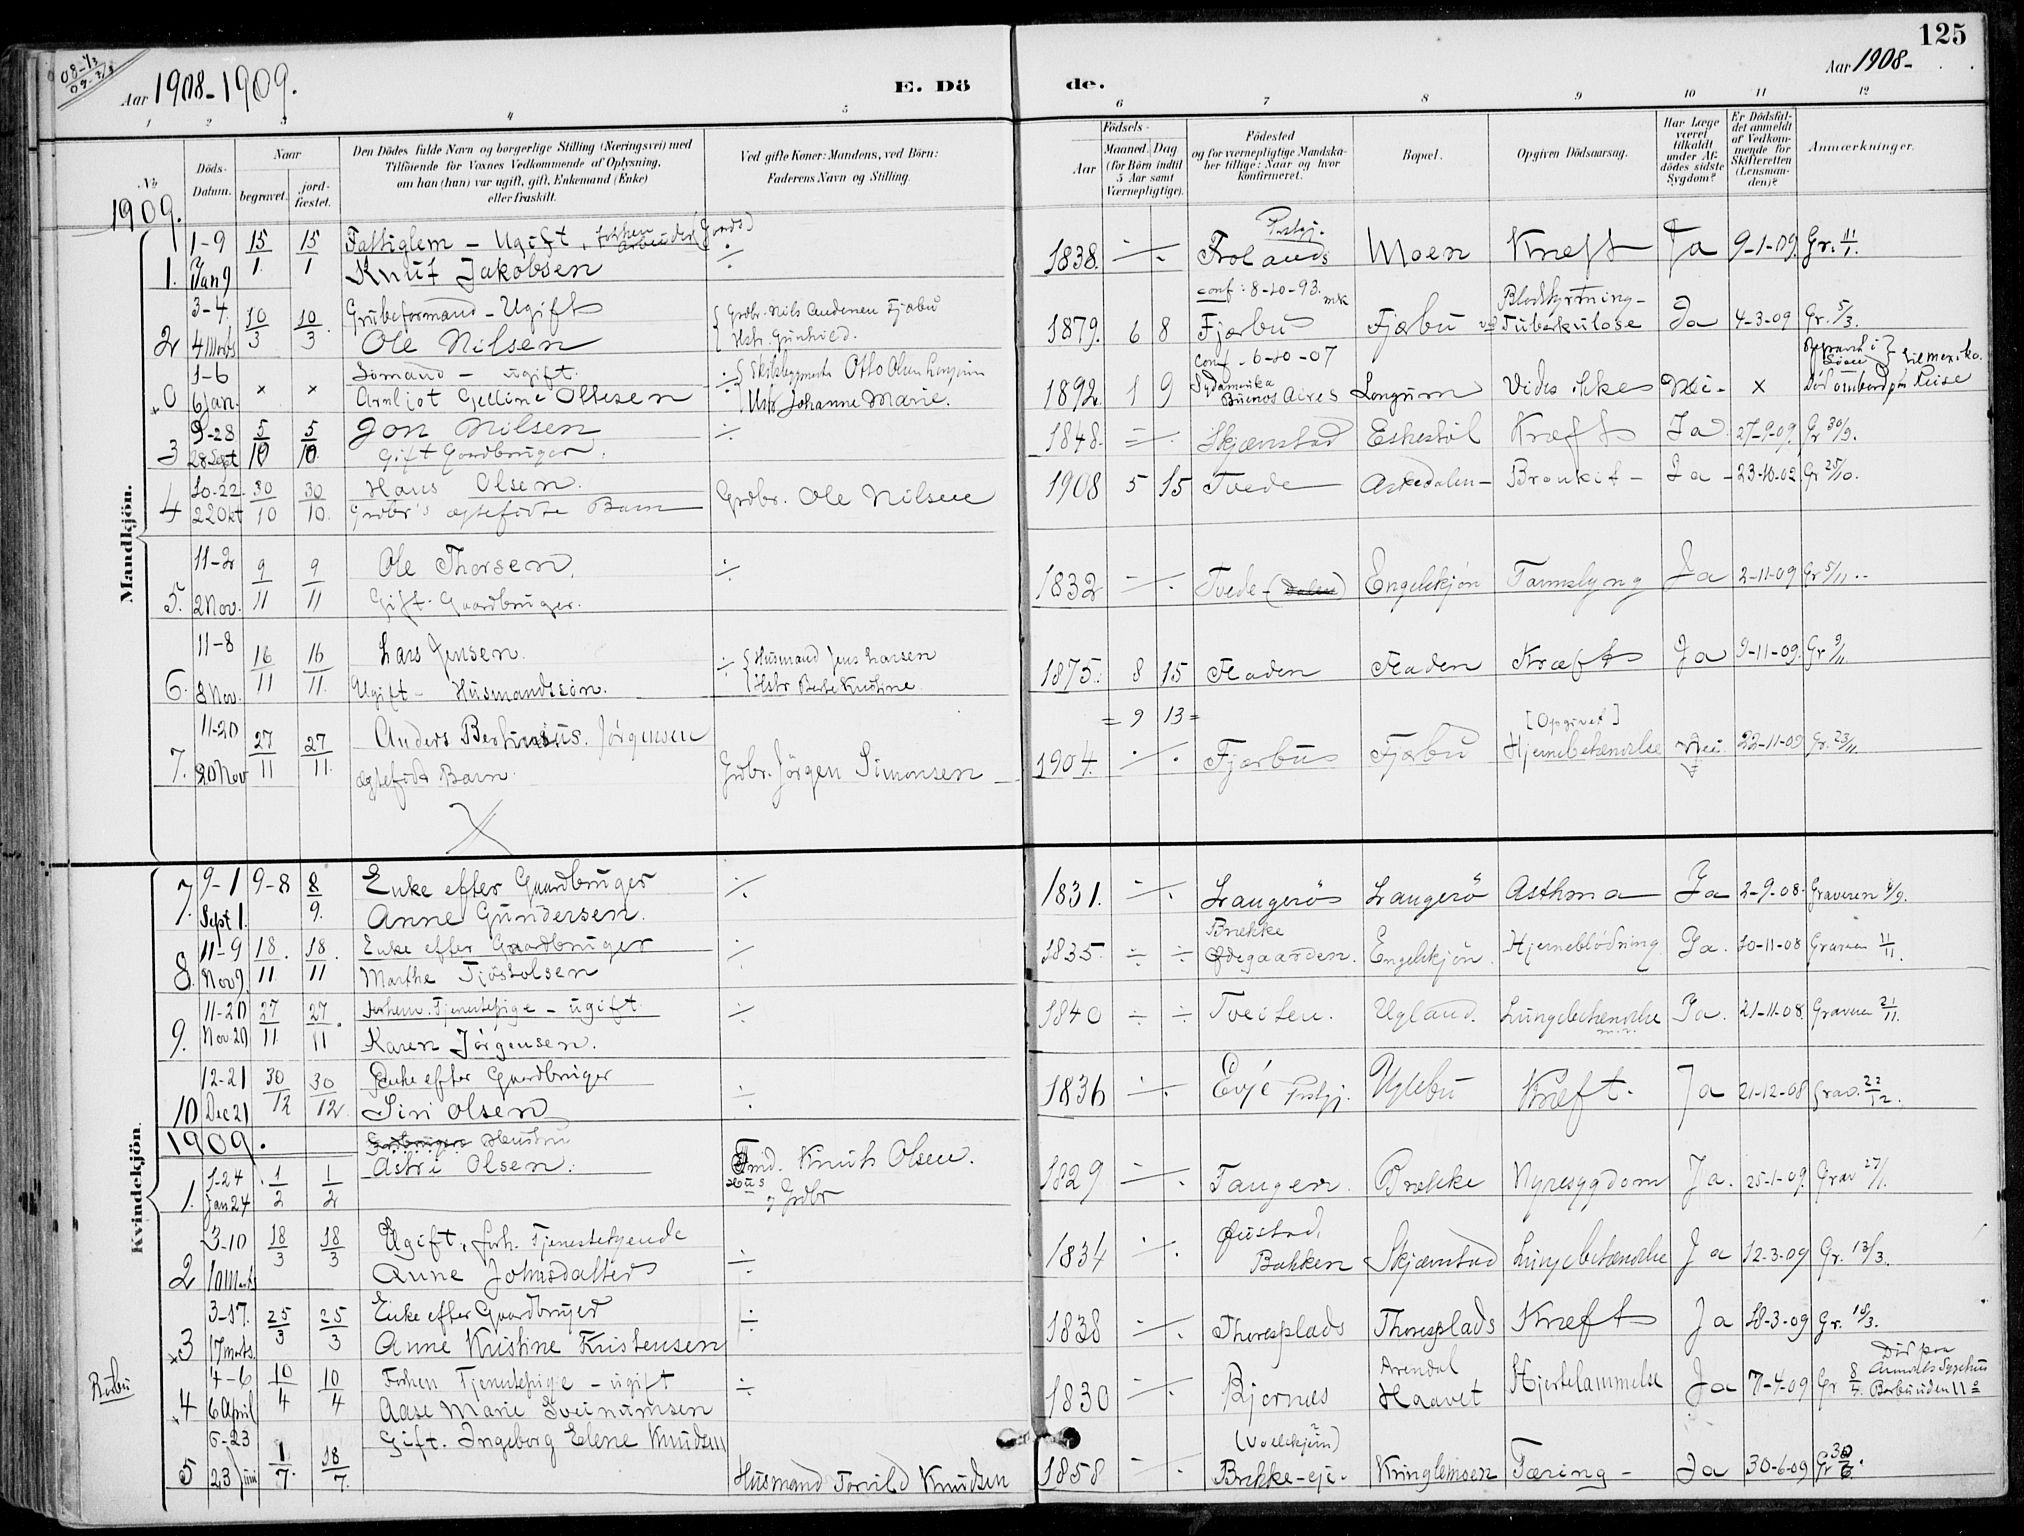 125
08-1/3
09-3/3
Aar 1908-1909.
E. Dö
de.
Aar 1908-
1 2 3 4 5 6 7 8 9 10 11 12
No
Döds-Datum.
Naar
begravet.
jord-fæstet.
Den Dödes fulde Navn og borgerlige Stilling (Næringsvei) med
Tilföiende for Voxnes Vedkommende af Oplysning,
om han (hun) var ugift, gift, Enkemand (Enke)
eller fraskilt.
Ved gifte Koner: Mandens, ved Börn:
Faderens Navn og Stilling.
Födsels-
Aar
Maaned. Dag
(for Börn indtil
5 Aar samt
Værnepligtige).
Födested
og for værnepligtige Mandska-
ber tillige: Naar og hvor
konfirmeret.
Bopæl.
Opgiven Dödsaarsag.
Har Læge
været
tilkaldt
under Af-
dödes sidste
Sygdom?
Er Dödsfal-
det anmeldt
af Vedkom-
mende for
Skifteretten
(Lensman-
den)?
Anmærkninger.
1909.
Mandkjön.
1. 1-9 Jan 9 15/1 15/1 Fattiglem - Ugift, (Gaards)
Knut Jakobsen ÷ 1838. ÷ Prstgj. Frolands Moen Kræft Ja 9-1-09. Gr. 11/1.
2 3-4. 4 Marts 10/3 10/3 Grubeformand - Ugift
Ole Nilsen Grdbr. Nils Andersen Fjæbu
Hstr. Gunhild. 1879. 6 8 conf: 8-10-93. Fjærbu Fjærbu Blodstyrtning -
Tuberkulose Ja 4-3-09 Gr. 5/3.
0 1-6 6 Jan. × × Sömand - ugift.
Arnljot Olsen Otto Olsen
Hstr Johanne Marie. 1892. 1 9 conf - 6-10-07
Sydamerika
Buenos Aires Longum Vides ikke Nei - × Död ombord paa Reise
3 9-28 28 Sept 5/10 5/10 Jon Nilsen
Gift Gaardbruger. ÷ 1848. ÷ Skjævstad Eskestöl Kræft Ja 27-9-09 Gr 30/9.
4 10-22. 22 Okt 30/10 30/10. Hans Olsen.
Grdbr's ægtefödte Barn Grdbr. Ole Nilsen 1908 5 15 Tvede Askedalen - Bronkit - Ja - 23-10-02 Gr 25/10.
5. 11-2 2 Nov. 9/11 9/11 Ole Thorsen.
Gift. Gaardbruger. ÷ 1832 ÷ Tvede - (Dalen) Engelskjön Tarmslyng Ja 2-11-09 Gr 5/11
6. 11-8 8 Nov. 16/11 16/11. Lars Jensen.
Ugift - Husmandssön. ÷ Husmand Jens Larsen
Hstr Berte Kristine. 1875. 8 15 Fladen Fladen Kræft Ja 9-11-09. Gr 9/11
7. 11-20 20 Nov 27/11 27/11. Anders Jörgensen
ægtefödt Barn. Grdbr. Jörgen Simonsen - 1904. = 9 13 = Fjærbu Fjærbu [Opgivet]
Hjernebetændelse Nei. 22-11-09 Gr. 23/11.
Kvindekjön.
7. 9-1 Sept 1. 9-8 8/9. Enke efter Gaardbruger
Anne Gundersen. ÷ 1831. ÷ Langerö Langerö Asthma Ja 2-9-08. Graveren 4/9.
8. 11-9 Nov 9. 18/11. 18/11 Enke efter Gaardbruger
Marthe Tjöstolsen ÷ 1835. ÷ ÷ Brekke
Ødegaarden. Engelskjön. Hjerneblödning Ja. 10-11-08 Graveren 11/11.
9. 11-20 Nov 20 27/11 27/11. Forhenv. Tjenestepige - ugift.
Karen Jörgensen. ÷ 1840 ÷ ÷ Tveiten. Ugland. Lungebetændelse Ja. 21-11-08. Graveren 21/11.
10 12-21 Dec 21 30/12 30/12. Enke efter Gaardbruger
Siri Olsen ÷ 1836 ÷ Evje Prstgj. Uglebu Kræft. Ja 21-12-08 Grav. 22/12.
1909.
1. 1-24 Jan 24 1/2 1/2 Hustru
Astri Olsen. Knut Olsen. 1829 ÷ Tangen. Brekke Nyresygdom Ja. 25-1-09 Grav 27/1.
2 3-10 10 Marts 18/3 18/3 Ugift, forh. Tjenestetyende
Anne Johnsdatter ÷ 1834 ÷ Øustad,
Bakken Skjævstad Lungebetændelse Ja 12-3-09 Gr. 13/3.
3 3-17. 17 marts. 25/3 25/3 Enke efter Gaardbruger
Anne Kristine Kristensen ÷ 1838 ÷ Thoresplads Thoresplads Kræft Ja 18-3-09 Gr. 18/3.
4 4-6 6 April 10/4 10/4 Forhen Tjenestepige - ugift
Aase Marie ÷ 1830 ÷ Bjornæs Arendal
Haavet Hjertelammelse Ja 7-4-09 Gr 8/4. Död paa
Arendals Sygehus
5 6-23 23 Juni 1/7. 18/7. Gift. Ingeborg Elene Knudsen
Husmand Torvild Knudsen 1858 ÷ Brekke-eje. Kringlemoen Tæring - Ja 30-6-09 Gr 30/6.